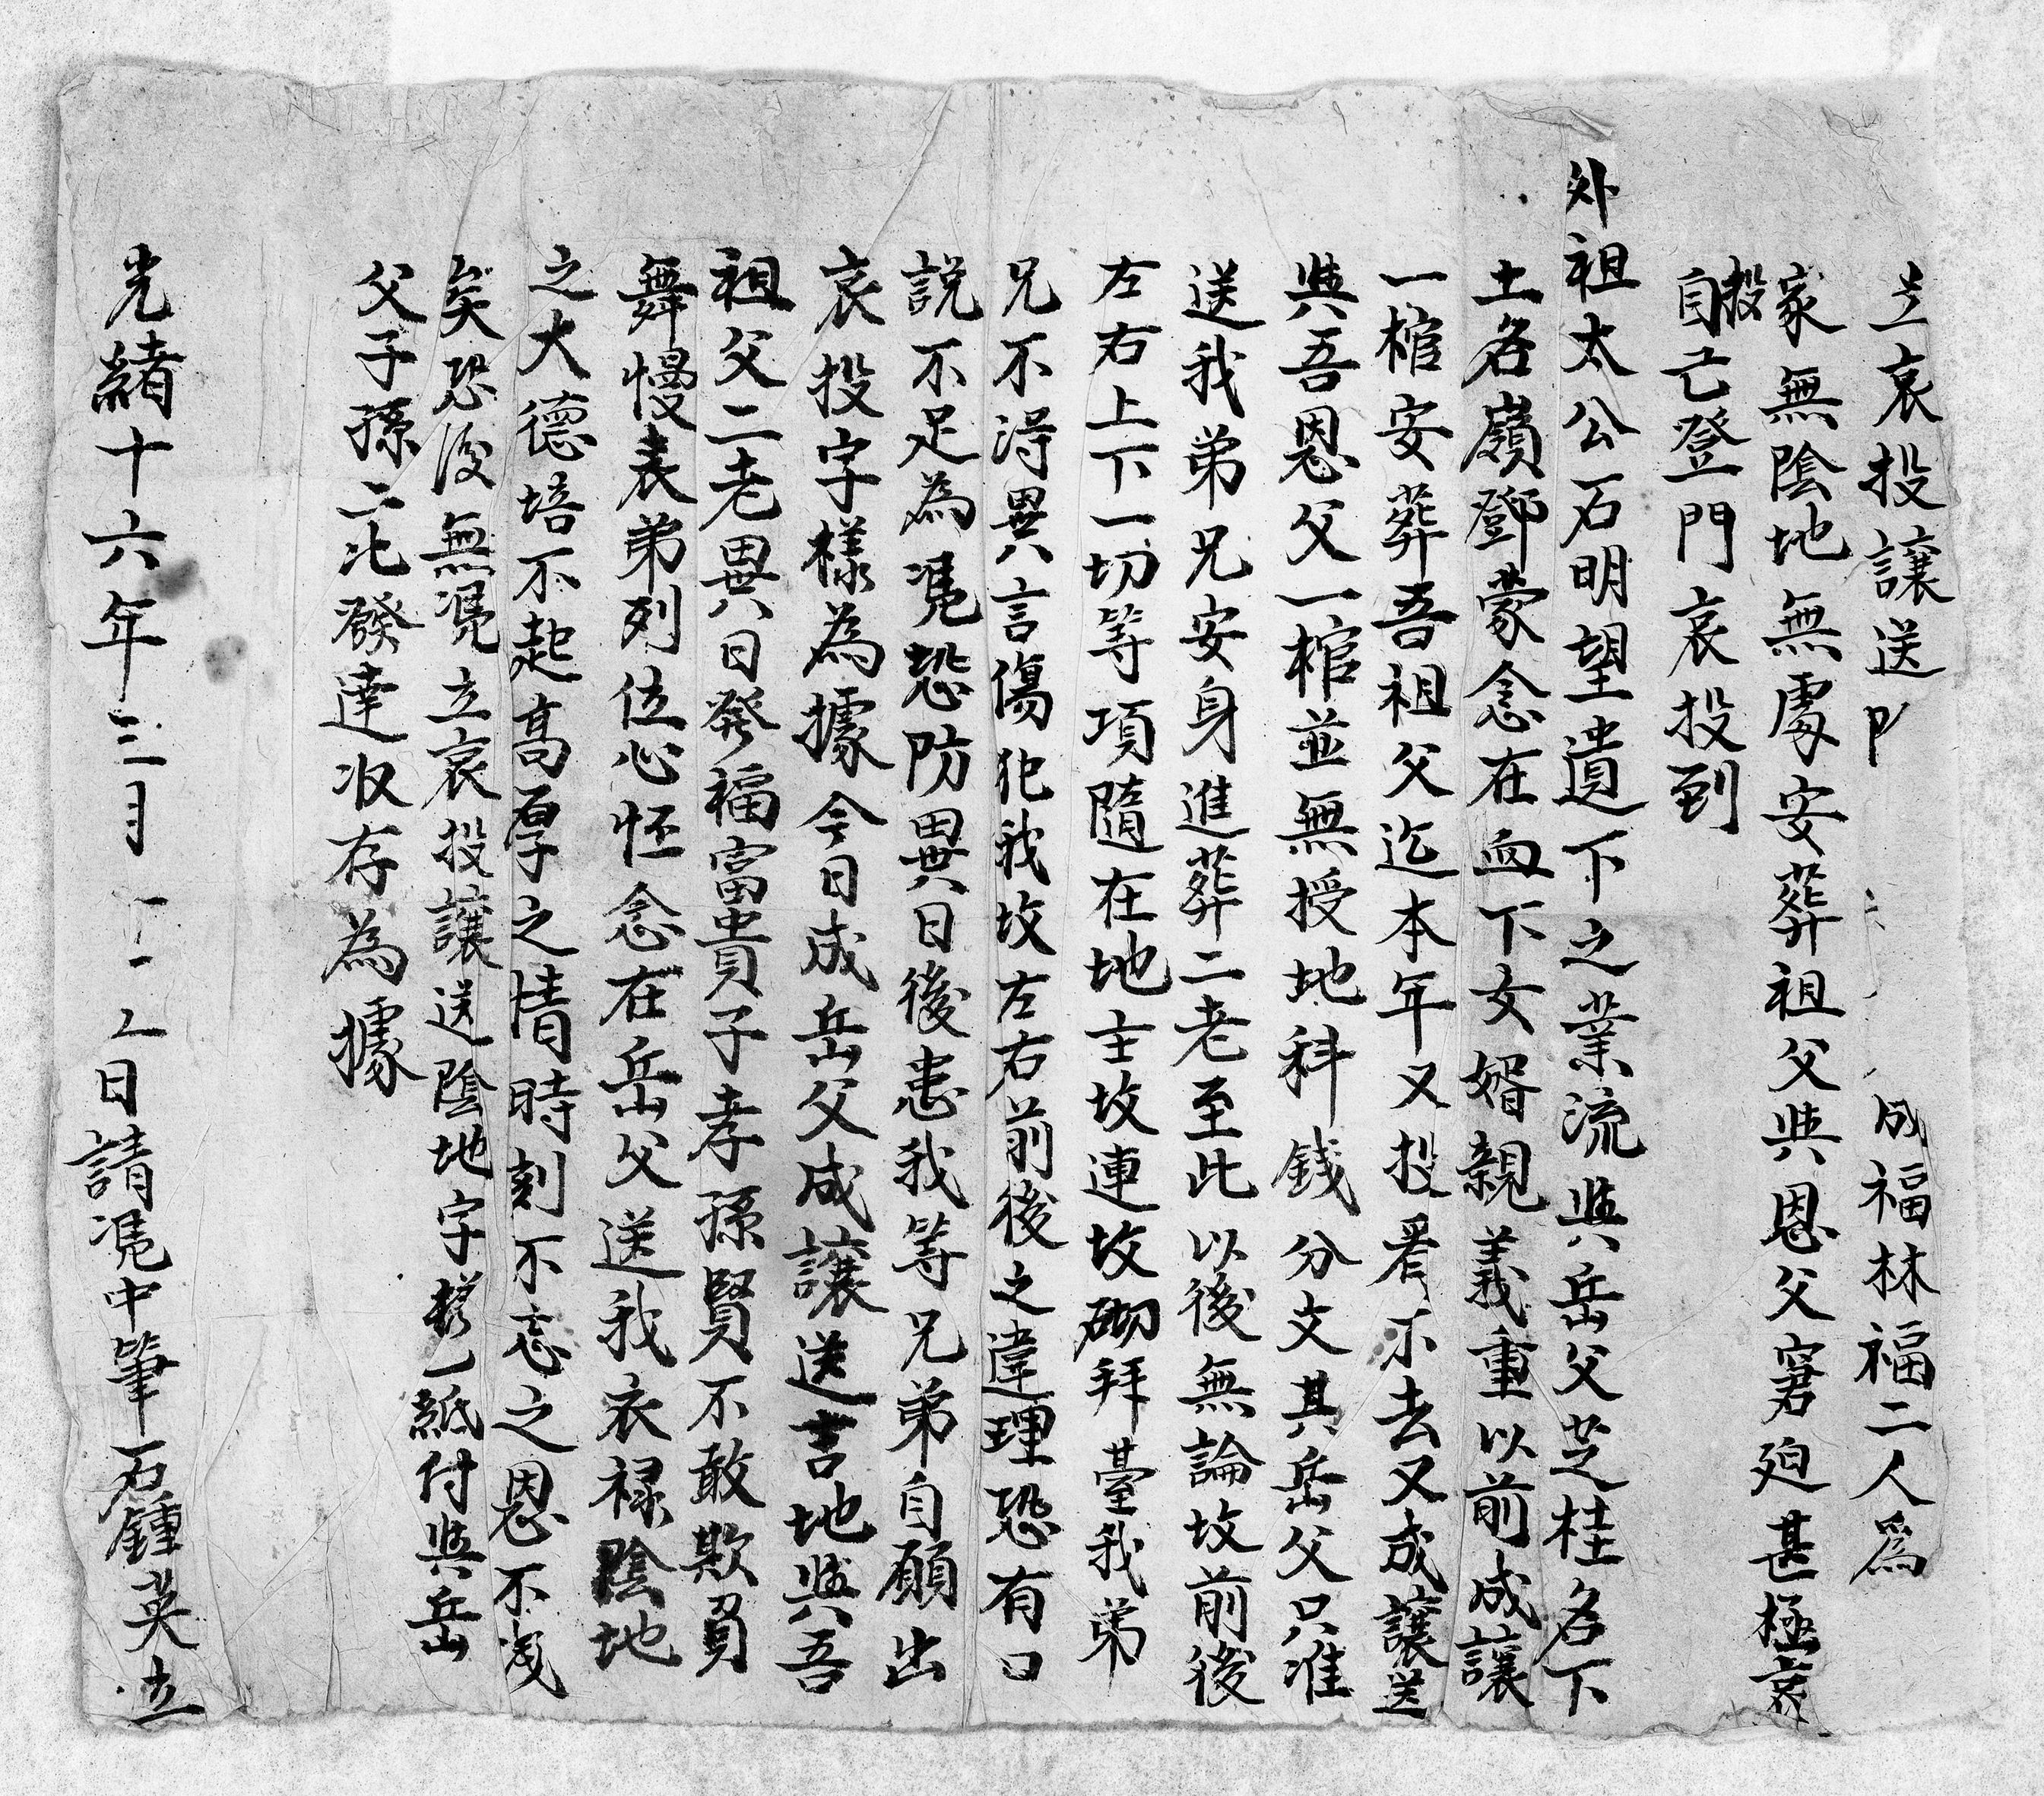 立哀投讓送阝 成福林福二人為
家無陰地無處安葬祖父與恩父窘廹甚極哀
投
自己登門哀投到
外祖太公石明望遺下之業流與岳父芝桂名下
土名嶺鄧蒙念在血下女婿親義重以前成讓
一棺安葬吾祖父迄本年又投看不去又成讓送
與吾恩父一棺並無授地科錢分文其岳父只准
送我弟兄安身進葬二老至此以後無論坟前後
左右上下一切等項隨在地主坟連坟砌拜臺我弟
兄不淂異言傷犯我坟左右前後之違理恐有口
説不足為凴恐防異日後患我等兄弟自願出
哀投字樣為據今日成岳父成讓送吉地與吾
祖父二老異日發福富貴子孝孫賢不敢欺負
舞慢表弟列位心怀念在岳父送我衣禄陰地
之大德培不起高厚之情時刻不忘之恩不浅
矣恐後無凴立哀投讓送陰地字樣一紙付與岳
父子孫二比發達收存為據
光緒十六年三月 日請凴中筆石鍾英立